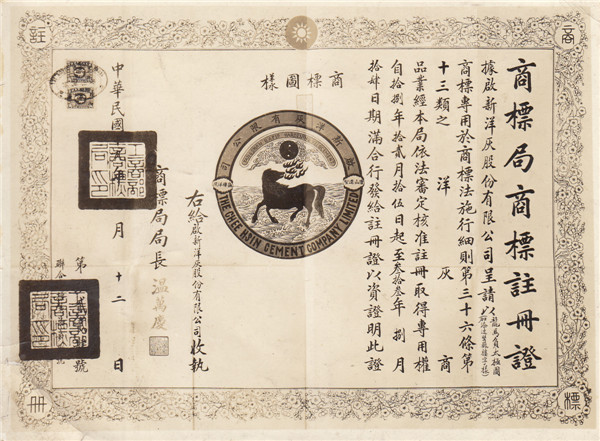 商標局商標註冊證
據啟新洋灰股份有限公司呈請以龍馬負太極圖
商標專用於商標法施行細則第三十六條第
十三類之洋灰商
品業經本局依法審定核准註冊取得專用權
自拾捌年拾貳月拾伍日起至叁拾叁年捌月
拾肆日期滿合行發給註冊證以資證明此證
商標圖樣
啟新洋灰有限公司
THE CHEE HSIN CEMENT COMPANY LIMITED
右給啟新洋灰股份有限公司收執
商標局局長
溫萬慶
中華民國
月十二日
第
號
商
標
註
冊